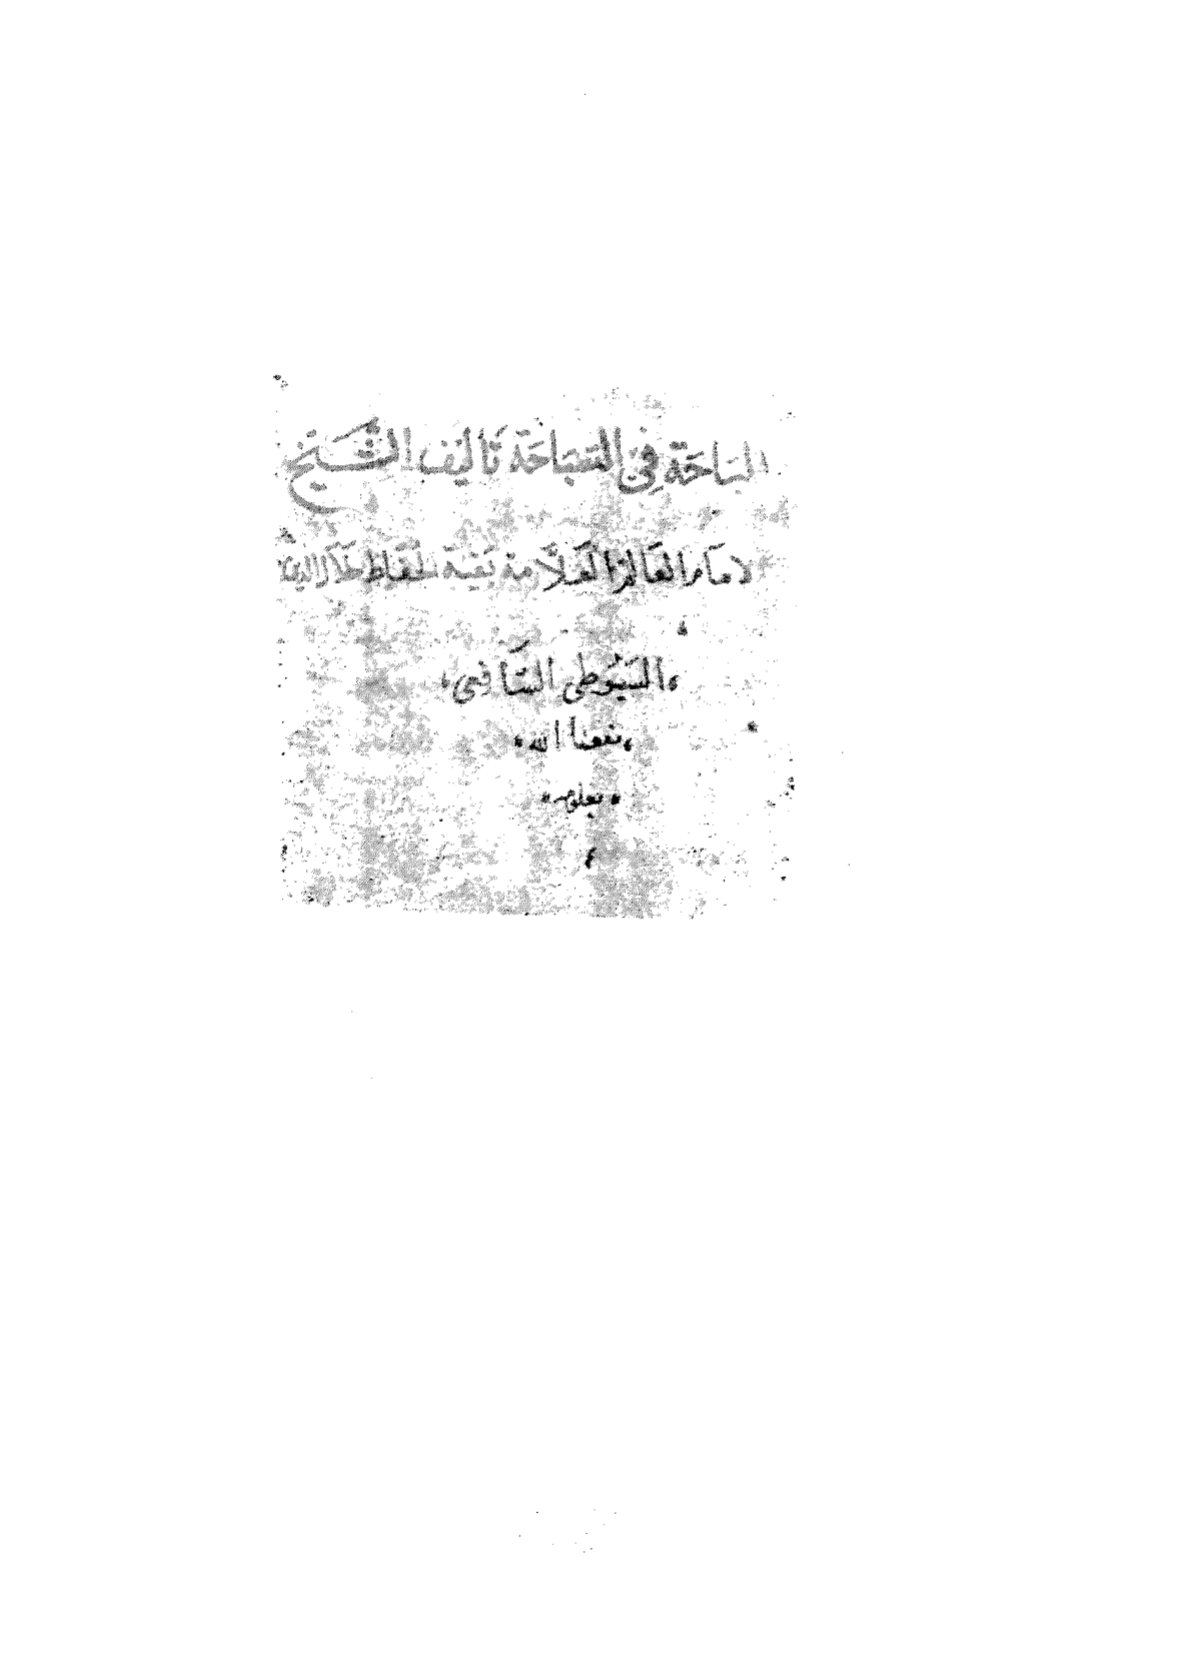 الباحة في السباحة تاليف الشيخ
لامام العالم العلامة بقية الحفاظ جلال الدين
السيوطي الشافعي
نفعنا الله
بعلومه